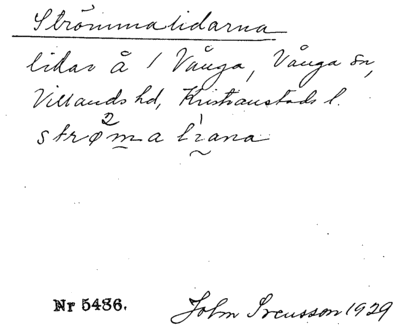 Strömmalidarna
lidar å 1 Vånga, Vånga sn,
Villands hd, Kristianstads l.
strømaliana
Nr 5486.
John Svensson 1929